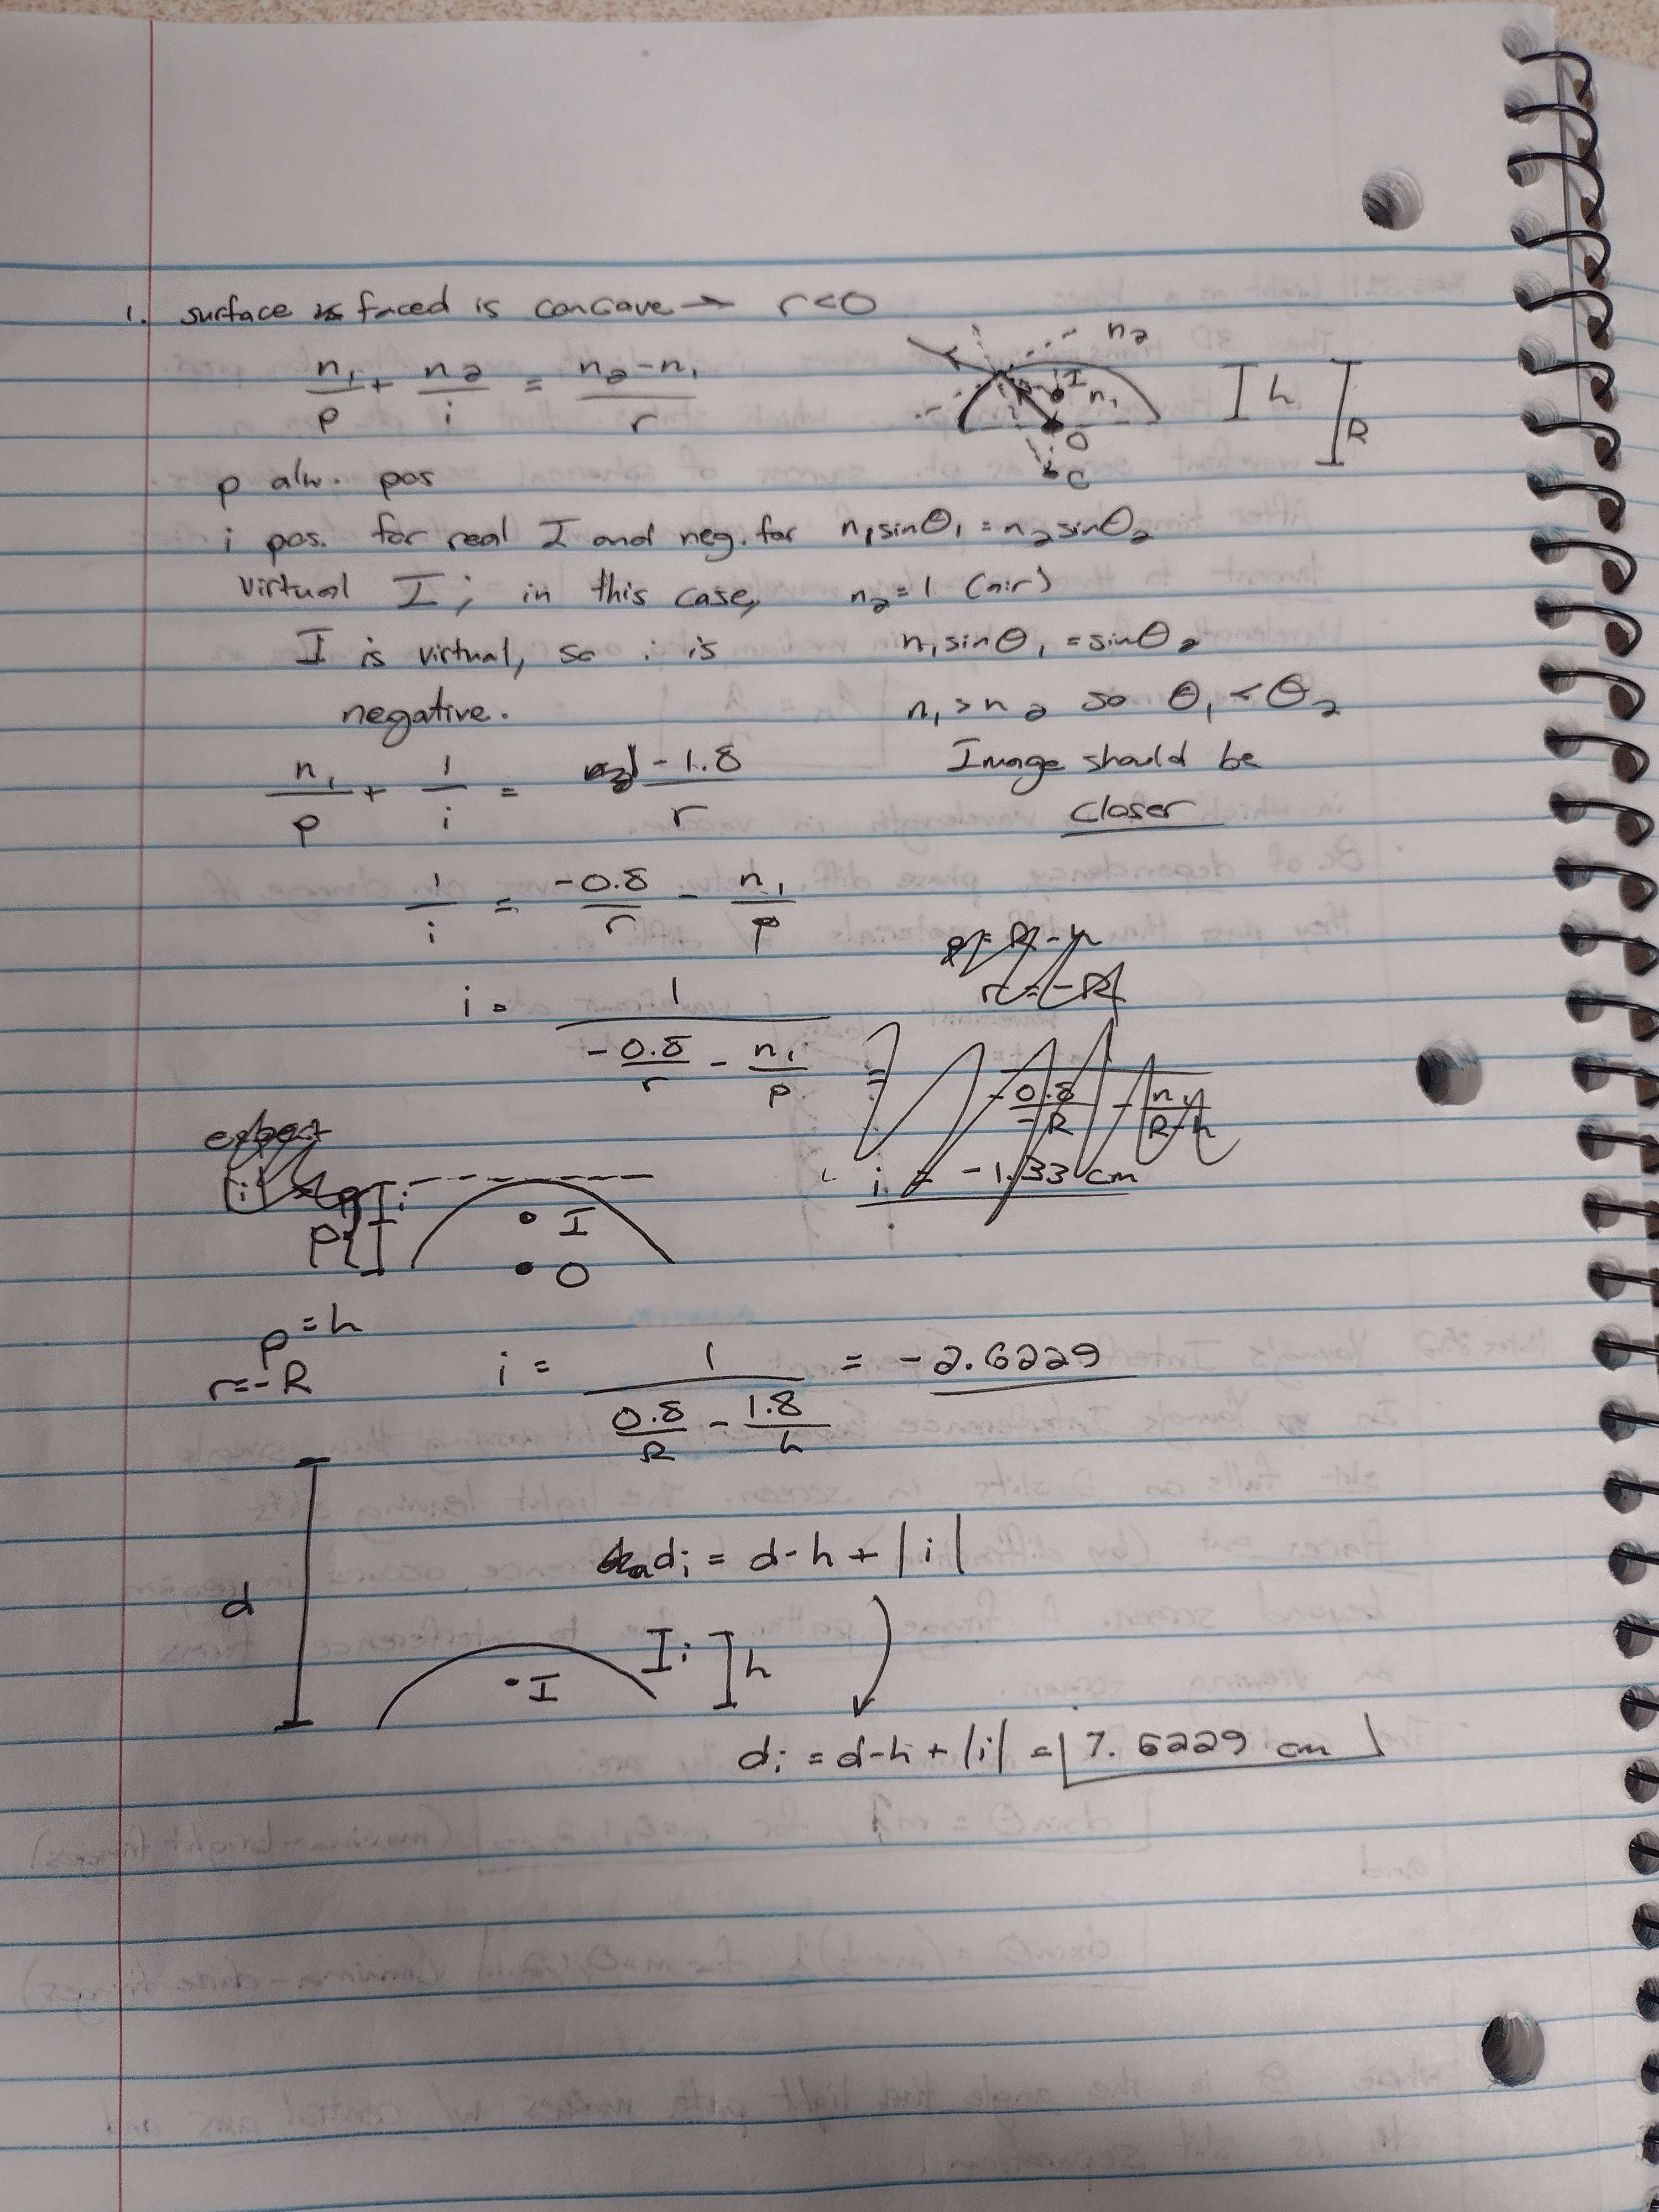 1. surface is faced is concave → r<0
n₁/p + n₂/i = (n₂-n₁)/r
n₂
I
n₁
O
C
h
R
p alw. pos
i pos. for real I and neg. for
virtual I; in this case,
I is virtual, so i is
negative.
n₁sinθ₁ = n₂sinθ₂
n₂=1 (air)
n₁sinθ₁ = sinθ₂
n₁>n₂ so θ₁ < θ₂
Image should be
closer
n₁/p + 1/i = (1-1.8)/r
1/i = -0.8/r - n₁/p
p = R-h
r = -R
i = 1/(-0.8/r - n₁/p) = 1/(-0.8/-R - n₁/(R-h))
i = -1.33 cm
expect
|i| < p
i
p
I
O
p=h
r=-R
i = 1/(0.8/R - 1.8/h) = -2.6229
d
dᵢ = d-h + |i|
I
i
h
dᵢ = d-h + |i| = 7.6229 cm